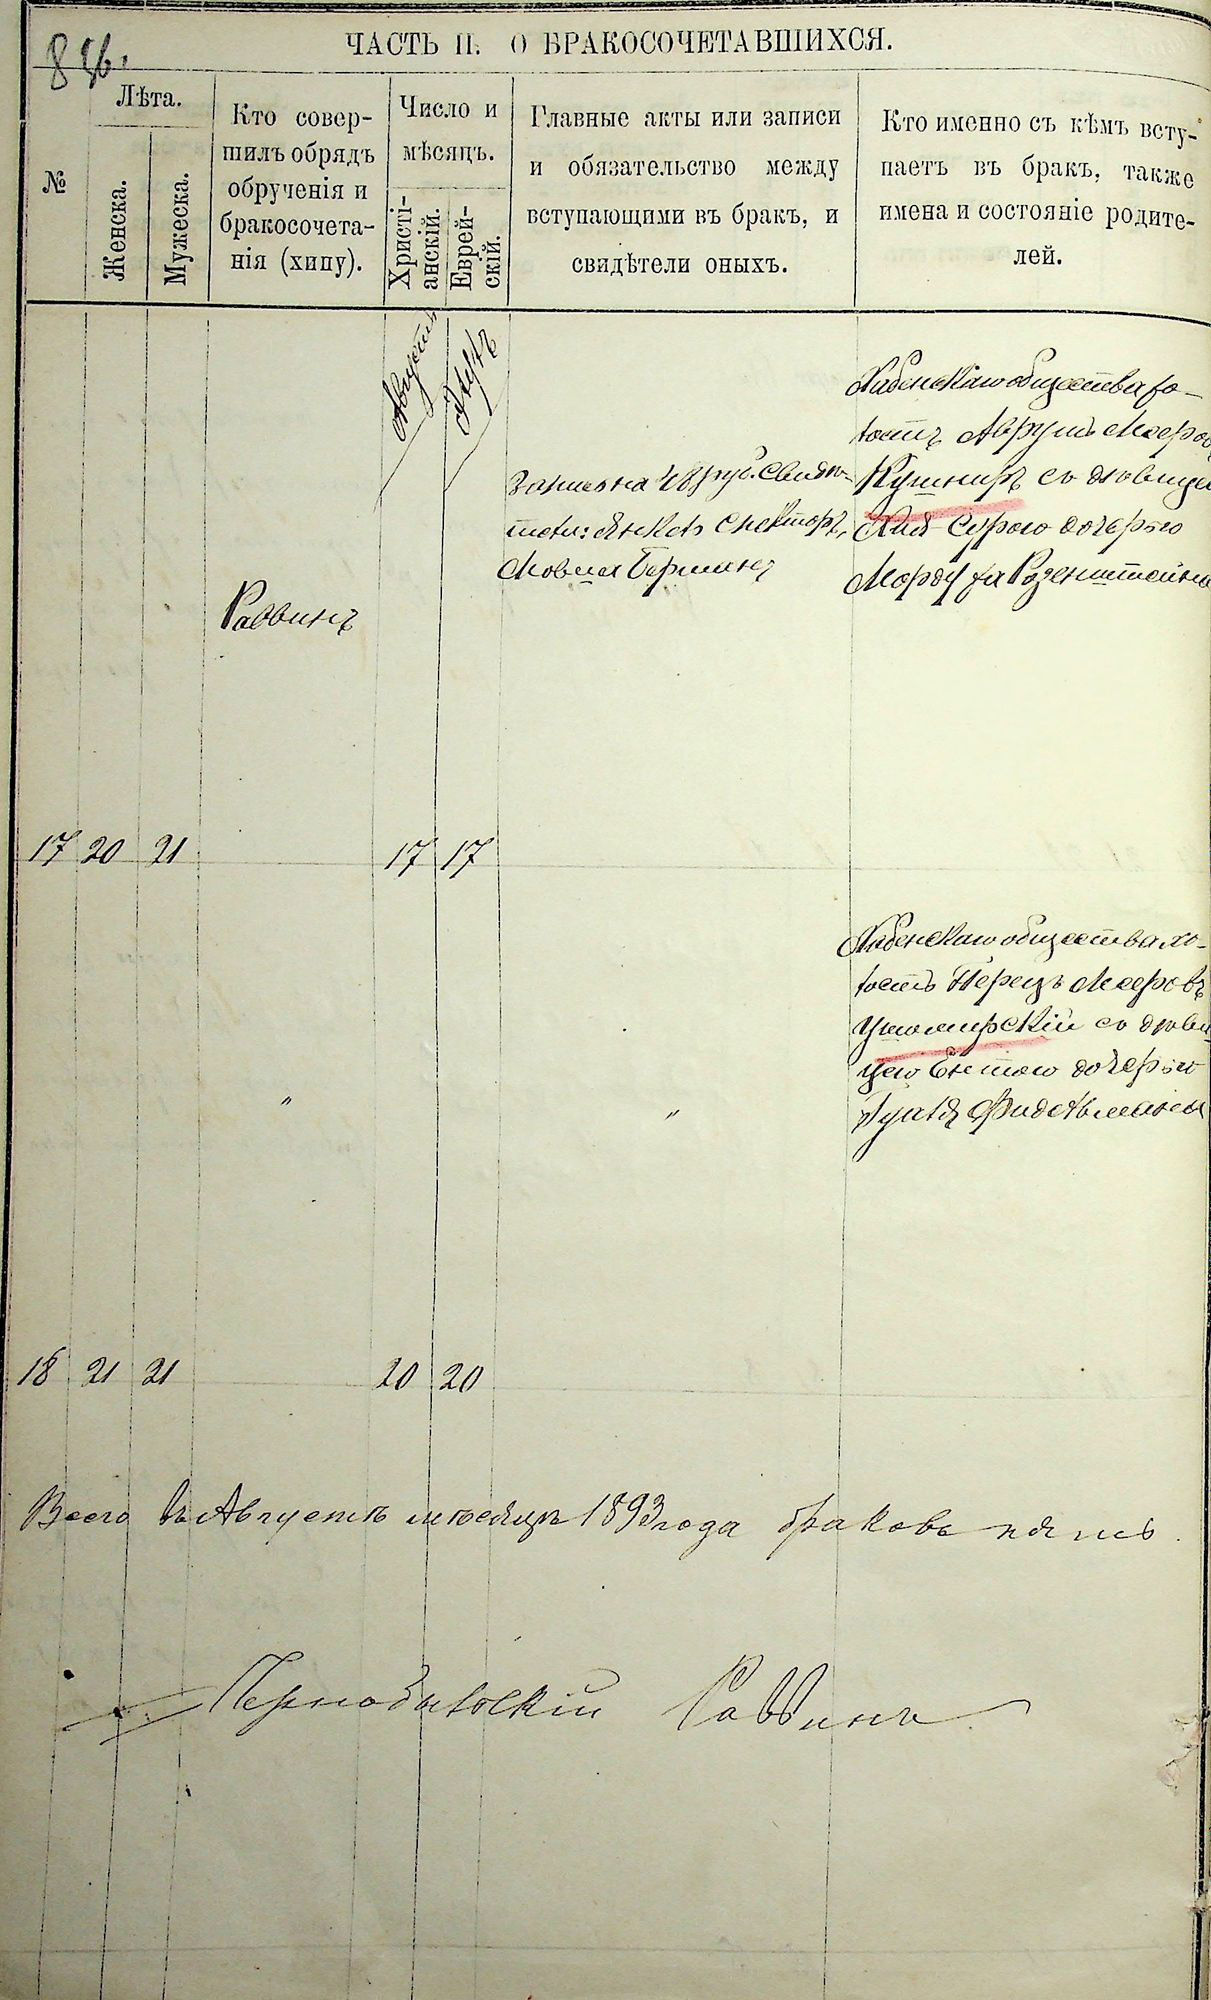 856.
ЧАСТЬ II. О БРАКОСОЧЕТАВШИХСЯ.
№
Лѣта.
Женска.
Мужеска.
Кто совер-
шилъ обрядъ
обрученія и
бракосочета-
нія (хипу).
Число и
мѣсяцъ.
Христі-
анскій.
Еврей-
скій.
Главные акты или записи
и обязательство между
вступающими въ бракъ, и
свидѣтели оныхъ.
Кто именно съ кѣмъ всту-
паетъ въ бракъ, также
имена и состояніе родите-
лей.
Августъ
17 20 21
Раввинъ
17 17
Запись на 48 руб. Свидѣ-
тели: Янкель Спекторъ,
Мовша Берманъ
Хабенскаго общества хо-
лостъ Аврумъ Мееровъ
Кушниръ со дѣвицею
Хая-Сурою дочерью
Мордуха Розенштейна
18 21 21
"
20 20
"
Хабенскаго общества хо-
лостъ Перецъ Мееровъ
Ушомирскій со дѣви-
цею Ентою дочерью
Фидельмана
Всего въ Августѣ мѣсяцѣ 1893 года браковъ пять.
Чернобыльскій Раввинъ